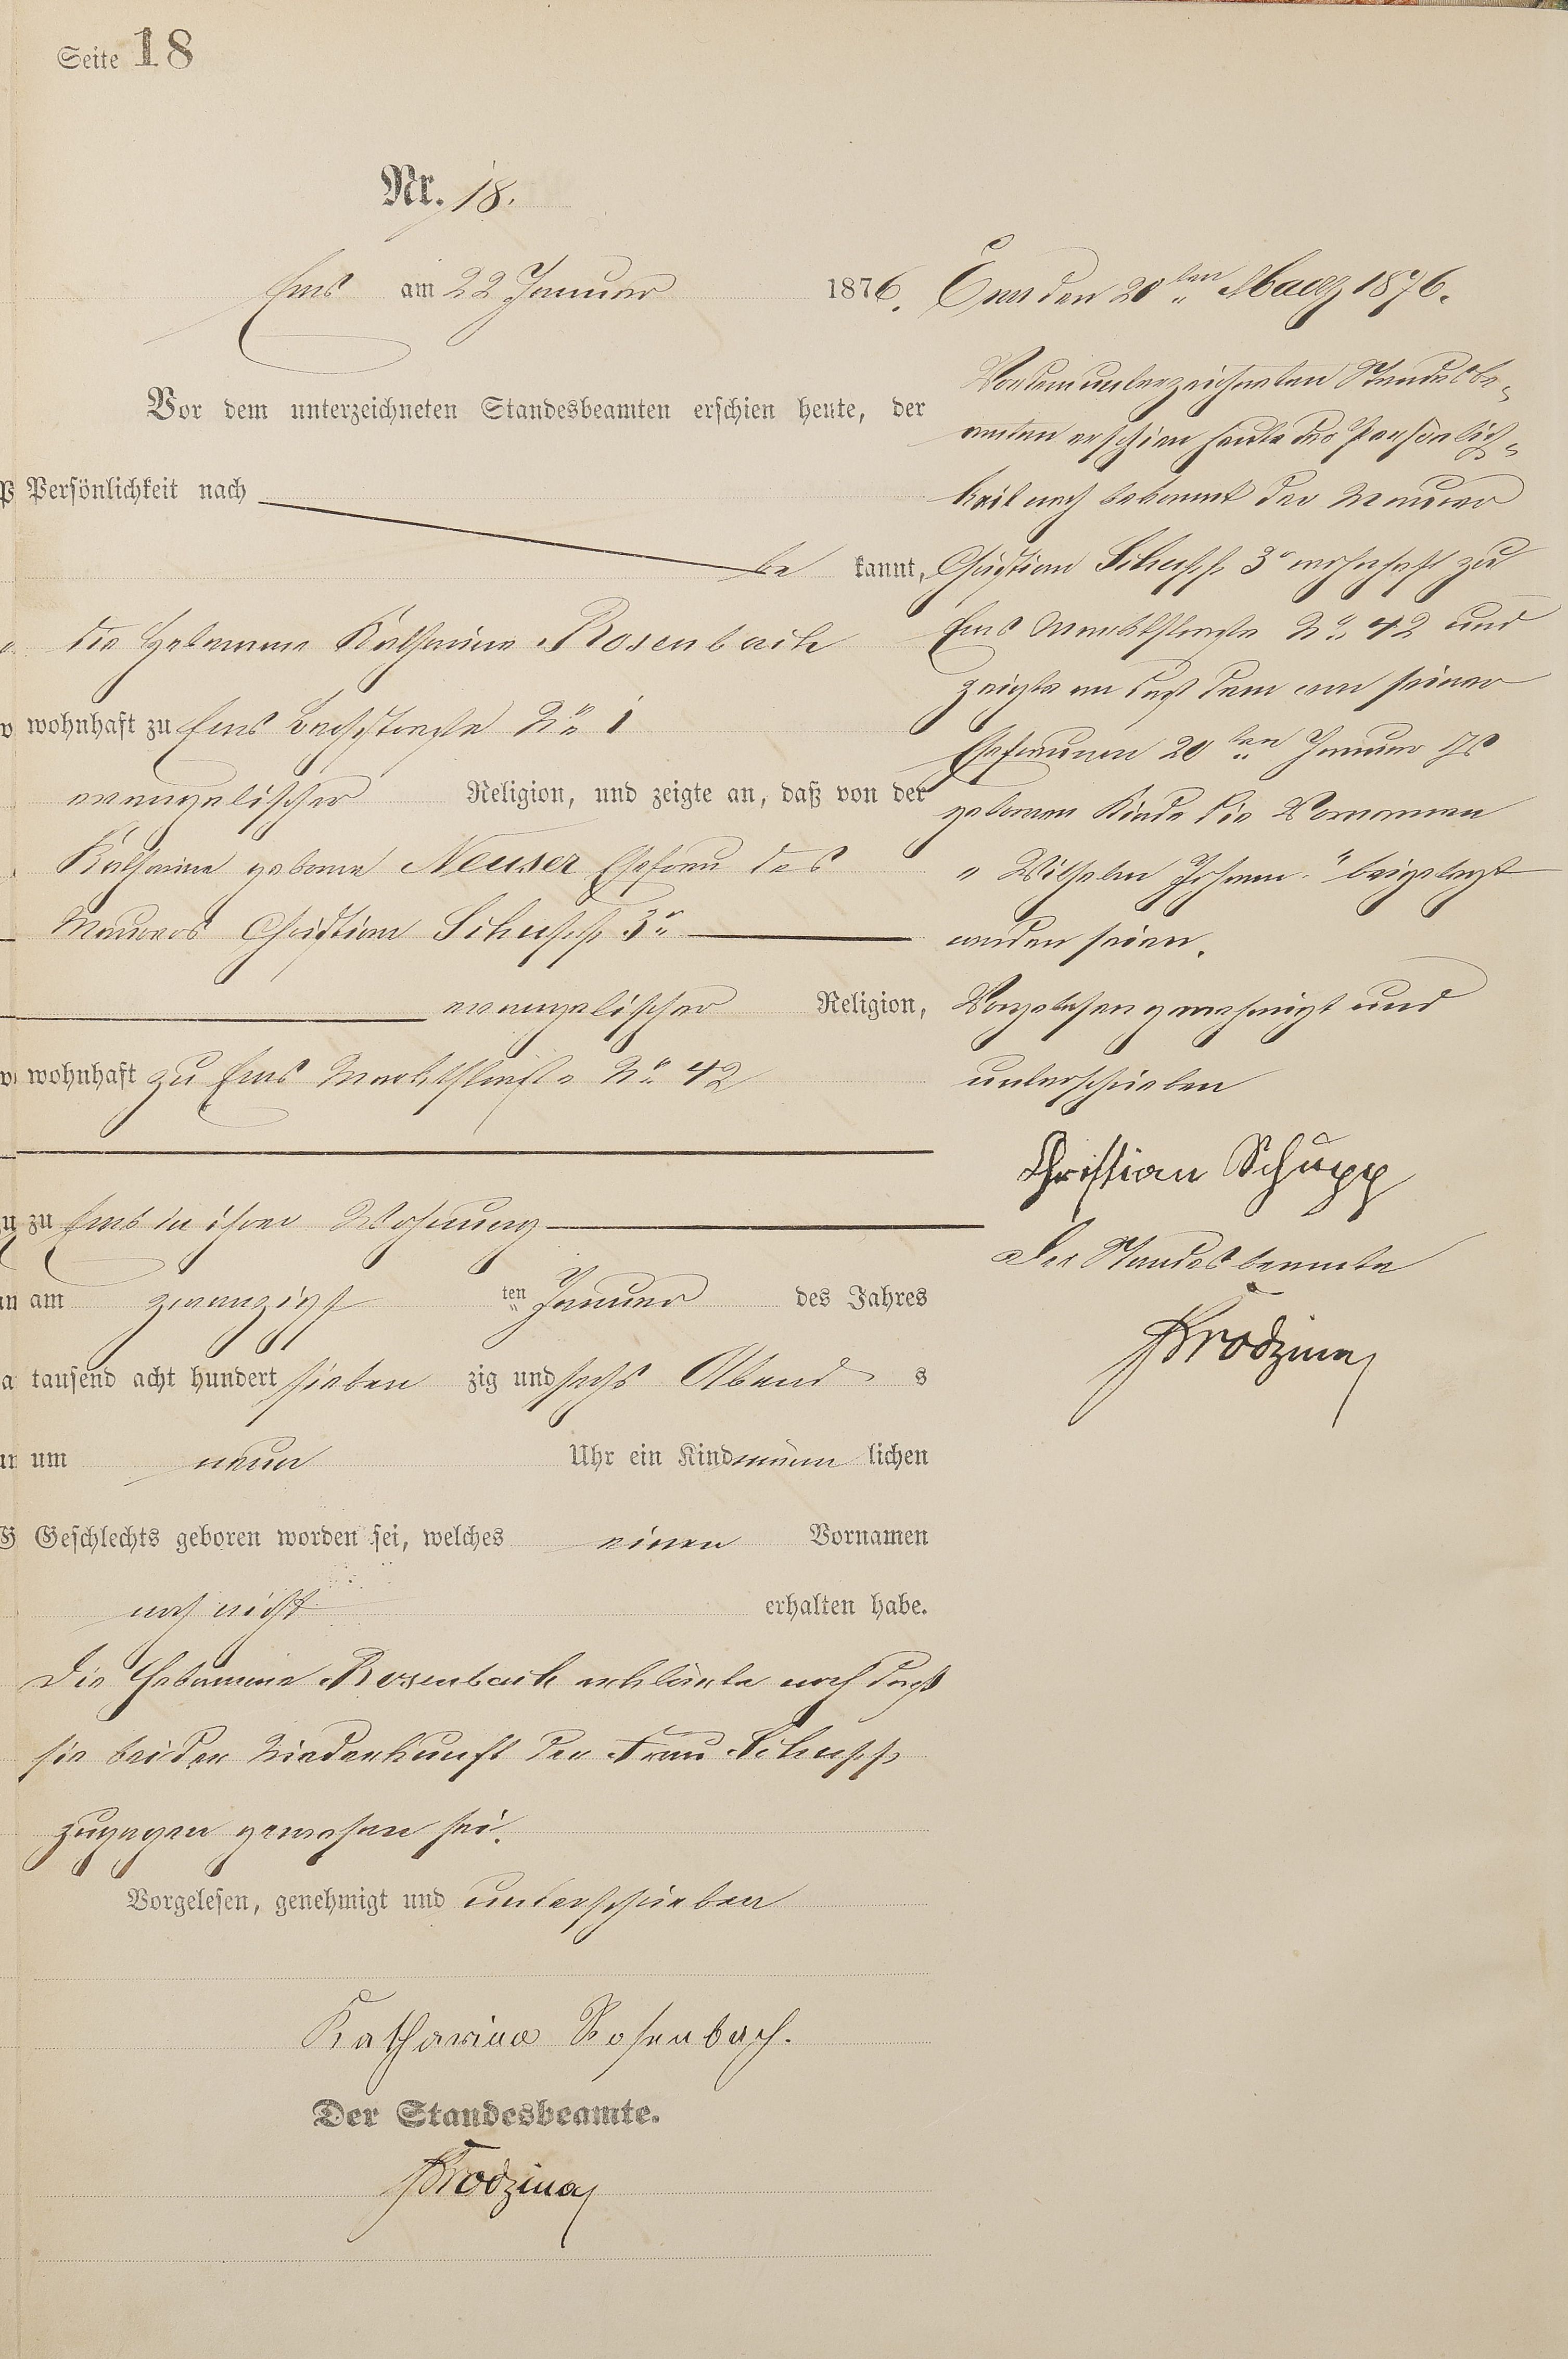 Seite 18
Nr. 18.
Ems am 22 Januar 1876.
Vor dem unterzeichneten Standesbeamten erschien heute, der
Persönlichkeit nach
be kannt,
die Hebamme Katharina Rosenbach
wohnhaft zu Ems Bachstraße No 1
evangelischer Religion, und zeigte an, daß von der
Katharina geborne Neuser Ehefrau des
Maurers Christian Schupp 3r
evangelischer Religion,
wohnhaft zu Ems Marktstraße No 42
zu Ems in ihrer Wohnung
am zwanzigsten Januar des Jahres
tausend acht hundert sieben zig und sechs Abend s
um neun Uhr ein Kind männ lichen
Geschlechts geboren worden sei, welches einen Vornamen
noch nicht erhalten habe.
Die Hebamme Rosenbach erklärte noch daß
sie bei der Niederkunft der Frau Schupp
zugegen gewesen sei.
Vorgelesen, genehmigt und unterschrieben
Katharina Rosenbach.
Der Standesbeamte.
Brodzina
Ems den 20ten Maerz 1876.
Vor dem unterzeichneten Standesbe-
amten erschien heute der Persönlich-
keit nach bekannt der Maurer
Christian Schupp 3r wohnhaft zu
Ems Marktstraße No 42 und
zeigte an daß dem von seiner
Ehefrau am 20ten Januar Js
gebornen Kinde die Vornamen
"Wilhelm Johann" beigelegt
worden seien.
Vorgelesen genehmigt und
unterschrieben
Christian Schupp
Der Standesbeamte
Brodzina